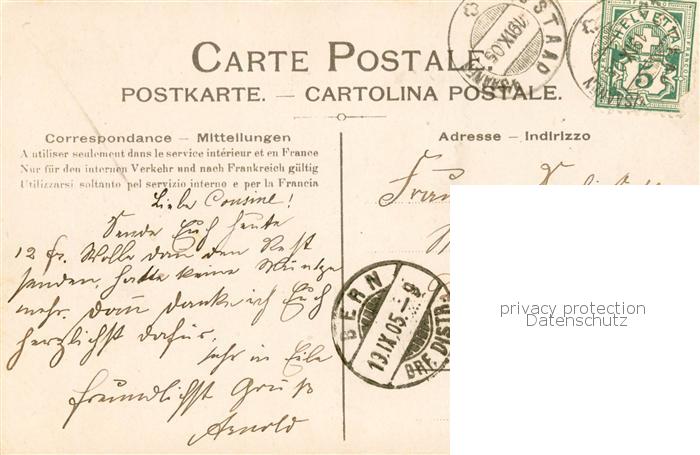 CARTE POSTALE.
POSTKARTE. — CARTOLINA POSTALE.
Correspondance — Mittellungen
A utiliser seulement dans le service intérieur et en France
Nur für den internen Verkehr und nach Frankreich gültig
Utilizzarsi soltanto pel servizio interno e per la Francia
Liebe Cousine!
Sende Euch heute
12 fr. Wolle dann den Rest
senden, hatte keine Müntze
mehr. Dann danke ich Euch
herzlichst dafür.
Sehr in Eile
freundlichst Gruß
Arnold
Adresse — Indirizzo
Frau
GSTAAD
(SAANEN)
19.IX.05
HELVETIA
5
BERN
19.IX.05.-9
BRF. DISTR
privacy protection
Datenschutz